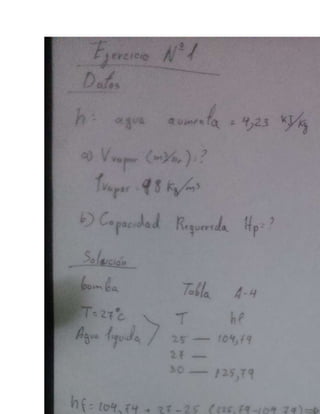 Ejercicio Nº 1
Datos
h: agua aumenta = 4,23 KJ/Kg
a) Vvapor (m3/hr)=?
ρvapor = 98 Kg/m3
b) Capacidad Requerida Hp=?
Solución
bomba Tabla A-4
T=27°C T hf
Agua liquida 25 — 104,79
27 —
30 — 125,79
hf = 104,79 + 27-25 (125,79-104,79)